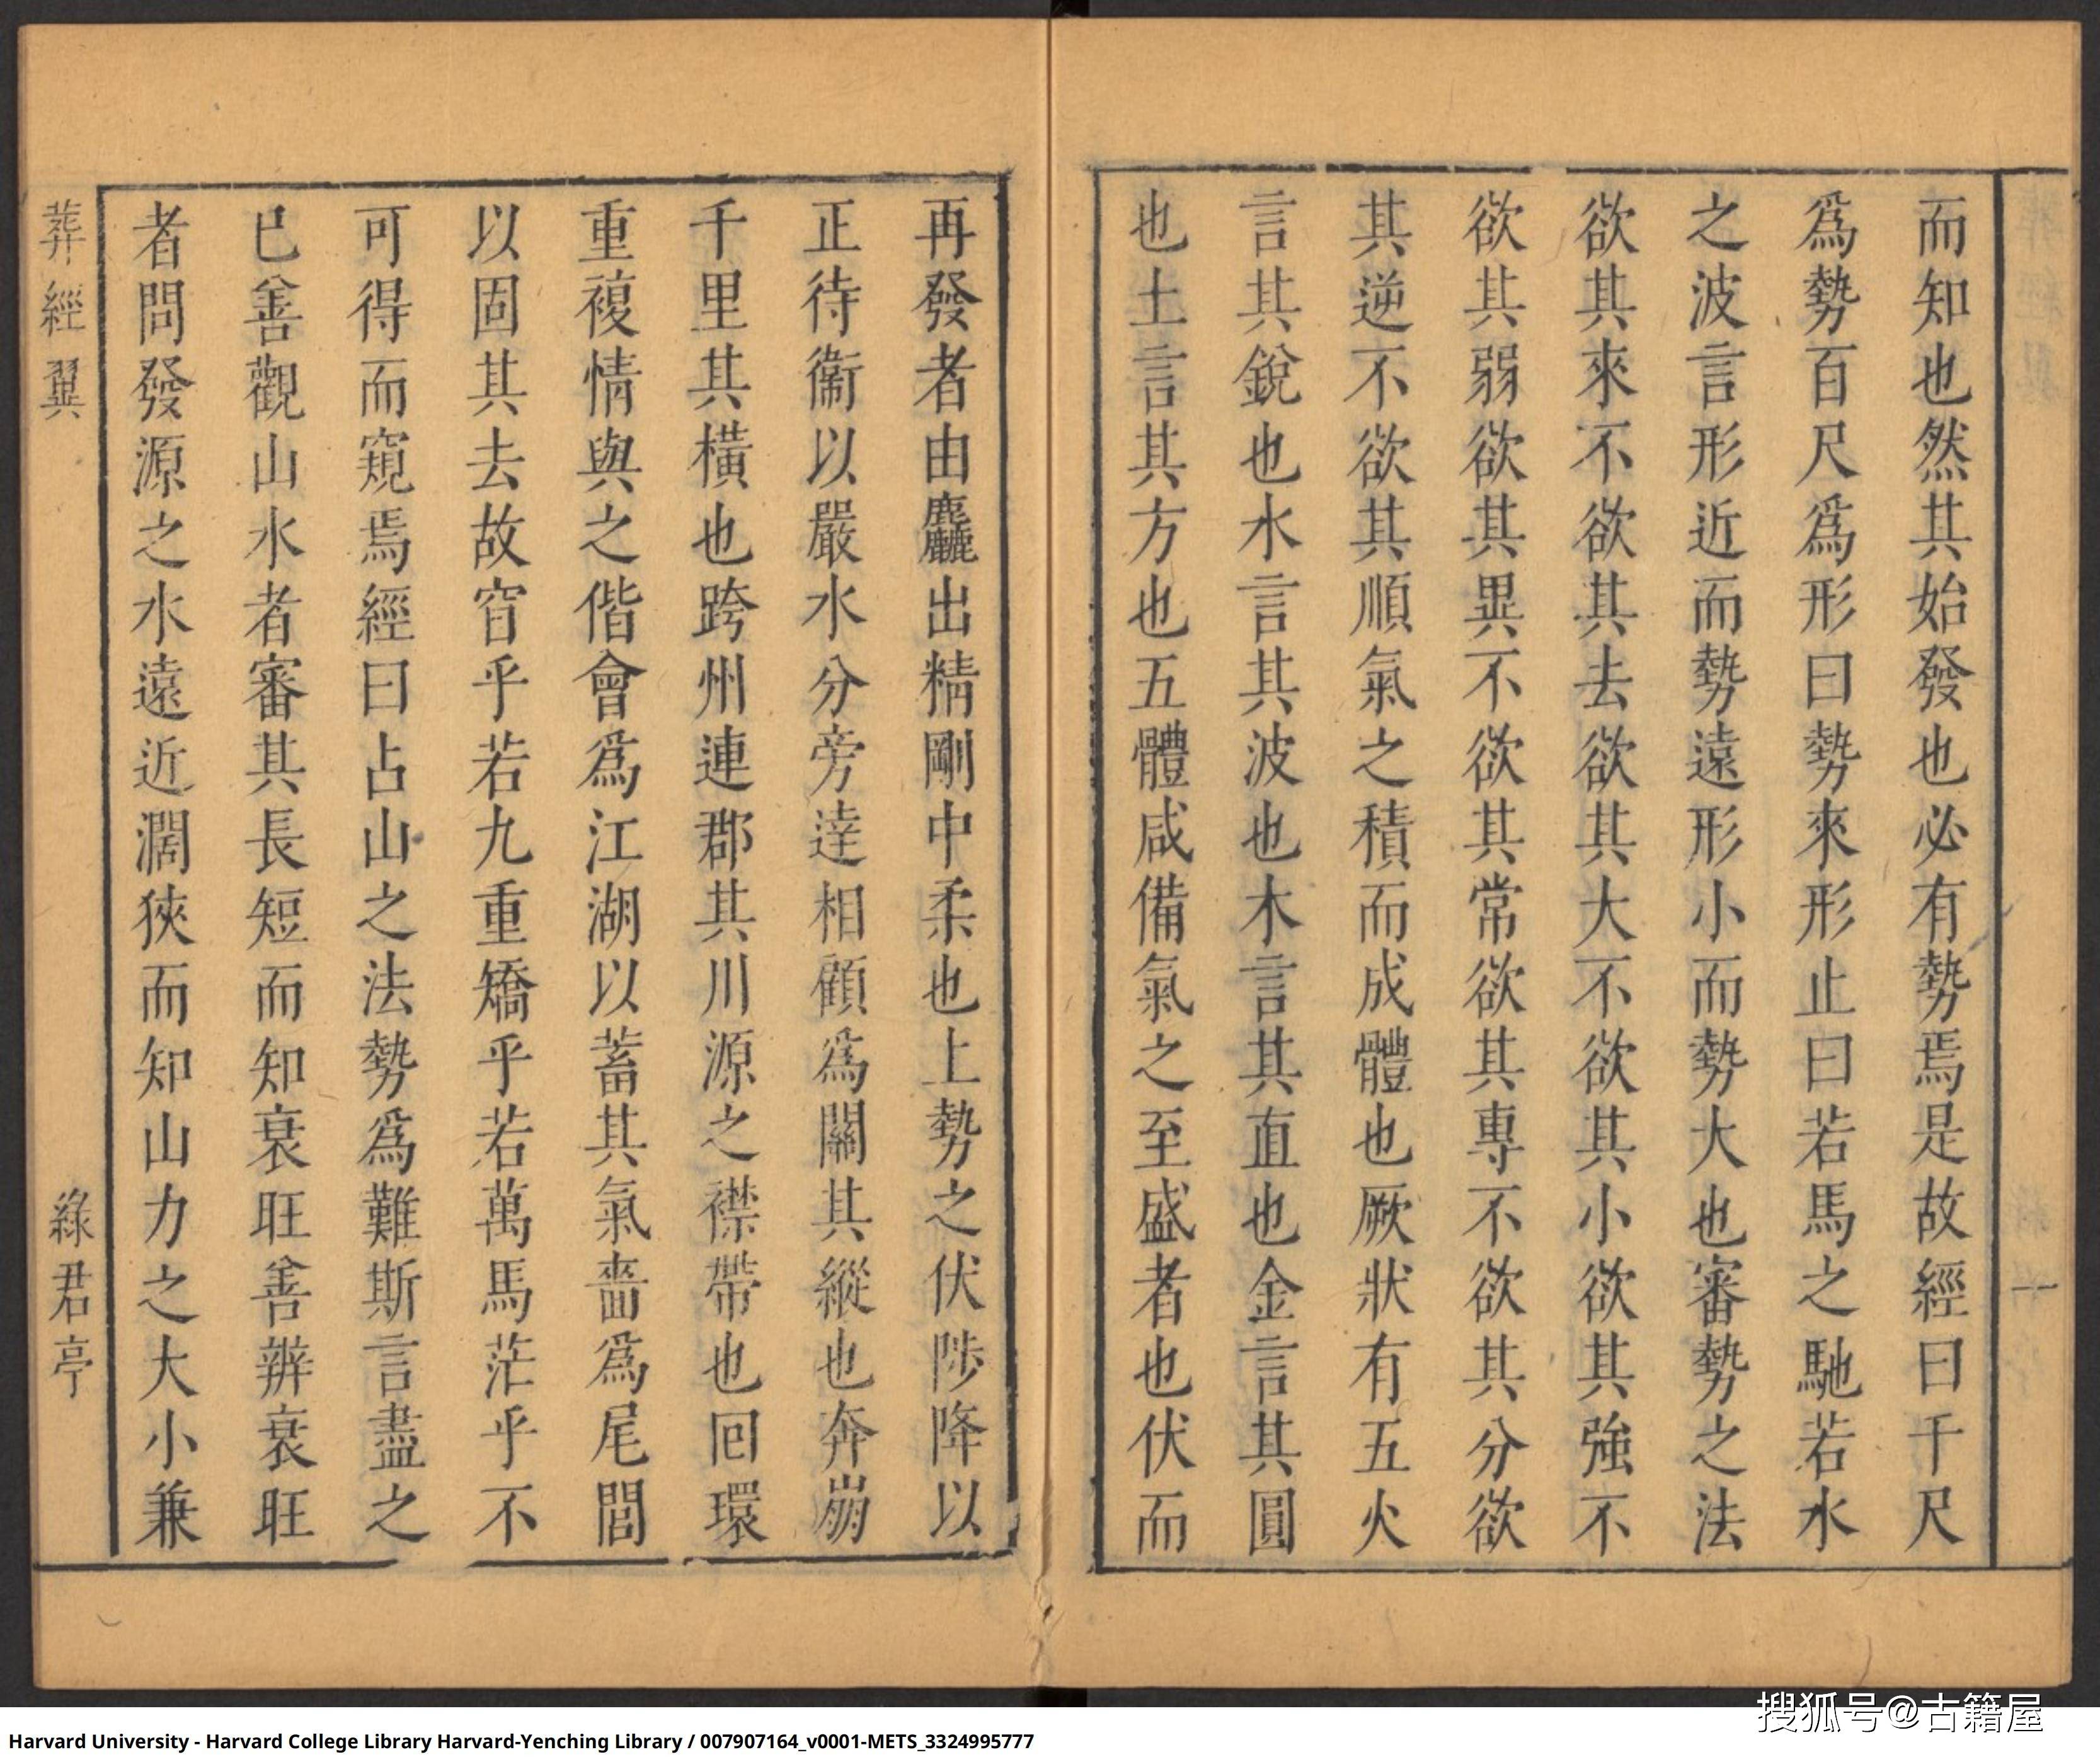 而知也然其始發也必有勢焉是故經曰千尺
爲勢百尺爲形曰勢來形止曰若馬之馳若水
之波言形近而勢遠形小而勢大也審勢之法
欲其來不欲其去欲其大不欲其小欲其強不
欲其弱欲其異不欲其常欲其專不欲其分欲
其逆不欲其順氣之積而成體也厥狀有五火
言其銳也水言其波也木言其直也金言其圓
也土言其方也五體咸備氣之至盛者也伏而
再發者由麤出精剛中柔也上勢之伏陟降以
正待衞以嚴水分旁達相顧爲關其縱也奔崩
千里其橫也跨州連郡其川源之襟帶也回環
重複情與之偕會爲江湖以蓄其氣嗇爲尾閭
以固其去故窅乎若九重矯乎若萬馬茫乎不
可得而窺焉經曰占山之法勢爲難斯言盡之
已善觀山水者審其長短而知衰旺善辨衰旺
者問發源之水遠近濶狹而知山力之大小兼
葬經翼
綠君亭
搜狐号@古籍屋
Harvard University - Harvard College Library Harvard-Yenching Library / 007907164_v0001-METS_3324995777